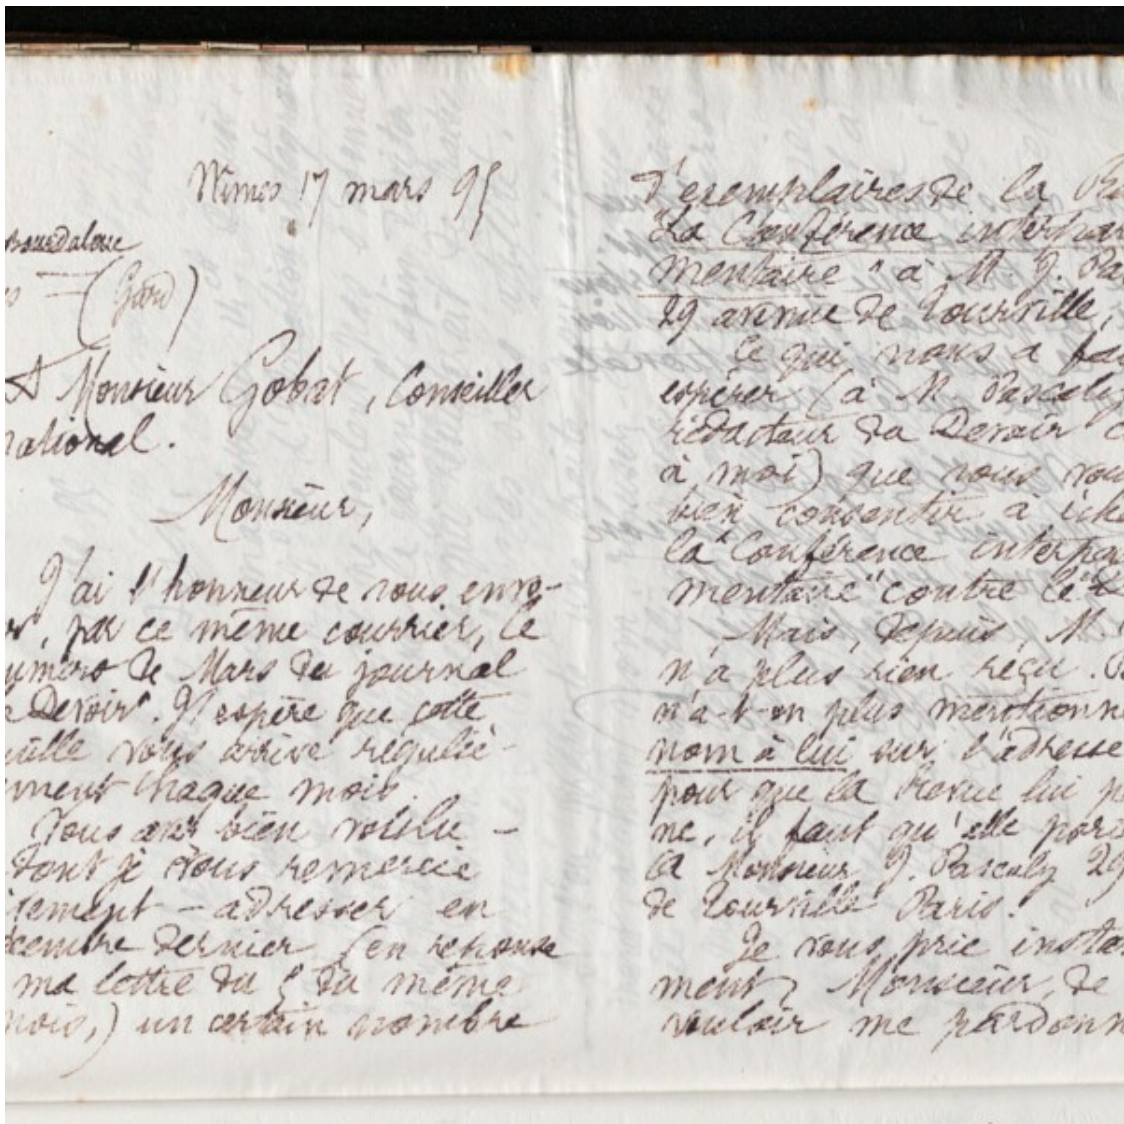 Nimes 17 mars 95
Bourdaloue
(Gard)
A Monsieur Gobat, Conseiller
national.
Monsieur,
J'ai l'honneur de vous envo-
, par ce même courrier, le
uméro de Mars du journal
Devoir". J'espère que cette
uille vous arrive réguliè-
ement chaque mois.
Vous avez bien voulu -
dont je vous remercie
- adresser en
écembre dernier (en réponse
ma lettre du 5 du même
mois,) un certain nombre
d'exemplaires de la Re
"La Conférence interpar
mentaire" à M J. Pa
29 avenue de Tourville,
Ce qui nous a fai
espérer (à M Pascaly
rédacteur du Devoir
à moi) que vous vou
bien consentir à éch
la "Conférence interpa
mentaire" contre le "
Mais, depuis M.
n'a plus rien reçu.
n'a-t-on plus mentionn
nom à lui sur l'adresse
pour que la Revue lui p
ne, il faut qu'elle por
à Monsieur J. Pascaly 29
de Tourville Paris.
Je vous prie insta
ment, Monsieur, de
vouloir me pardonn